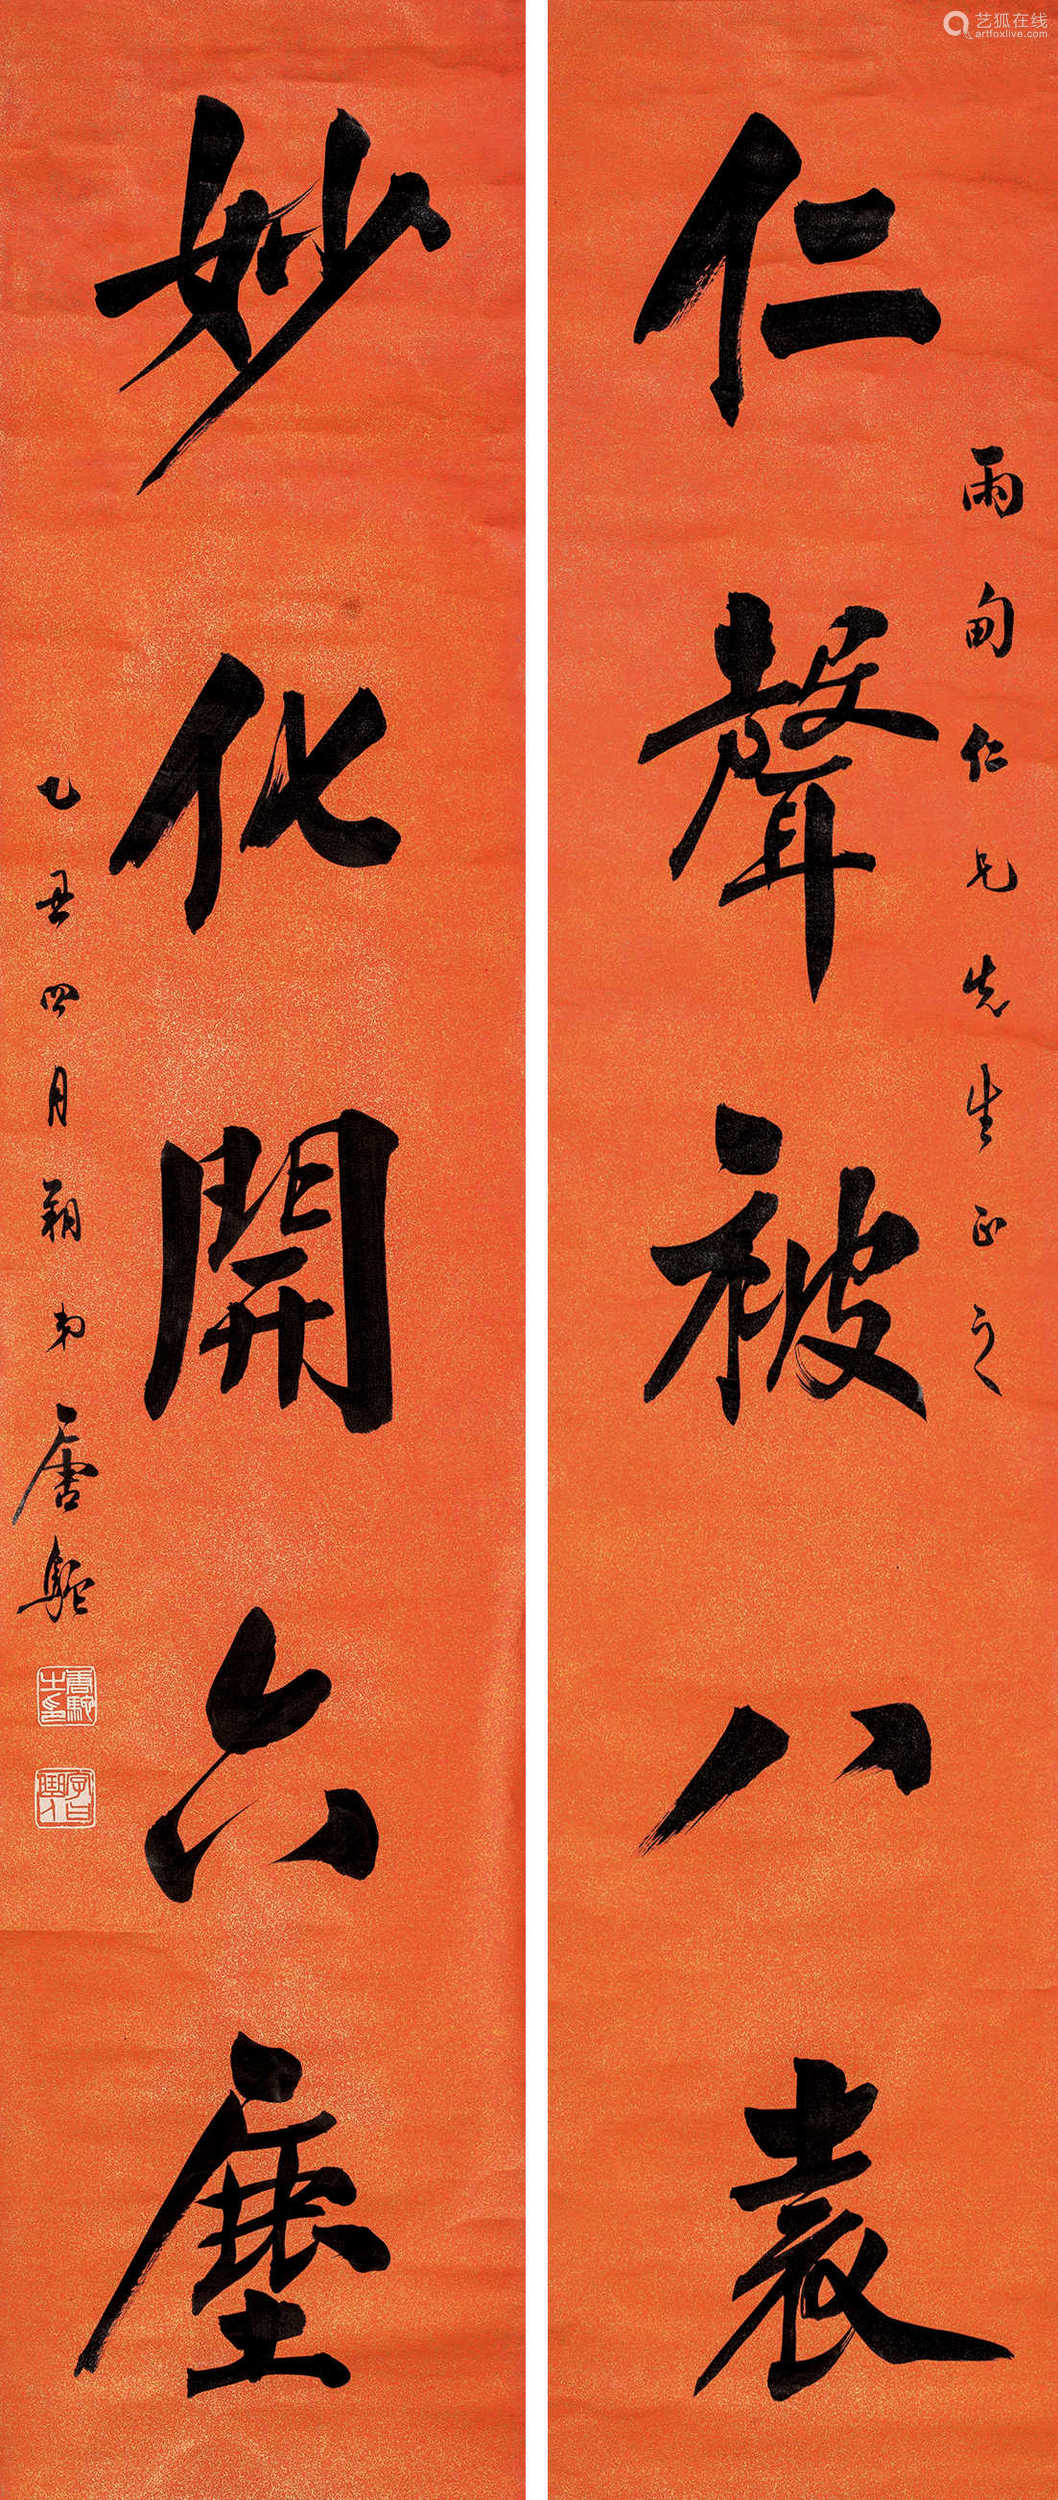 艺狐在线
artfoxlive.com
雨甸仁兄先生正之
仁聲被八表
妙化開六塵
乙丑四月朔弟唐駝
唐駝之印